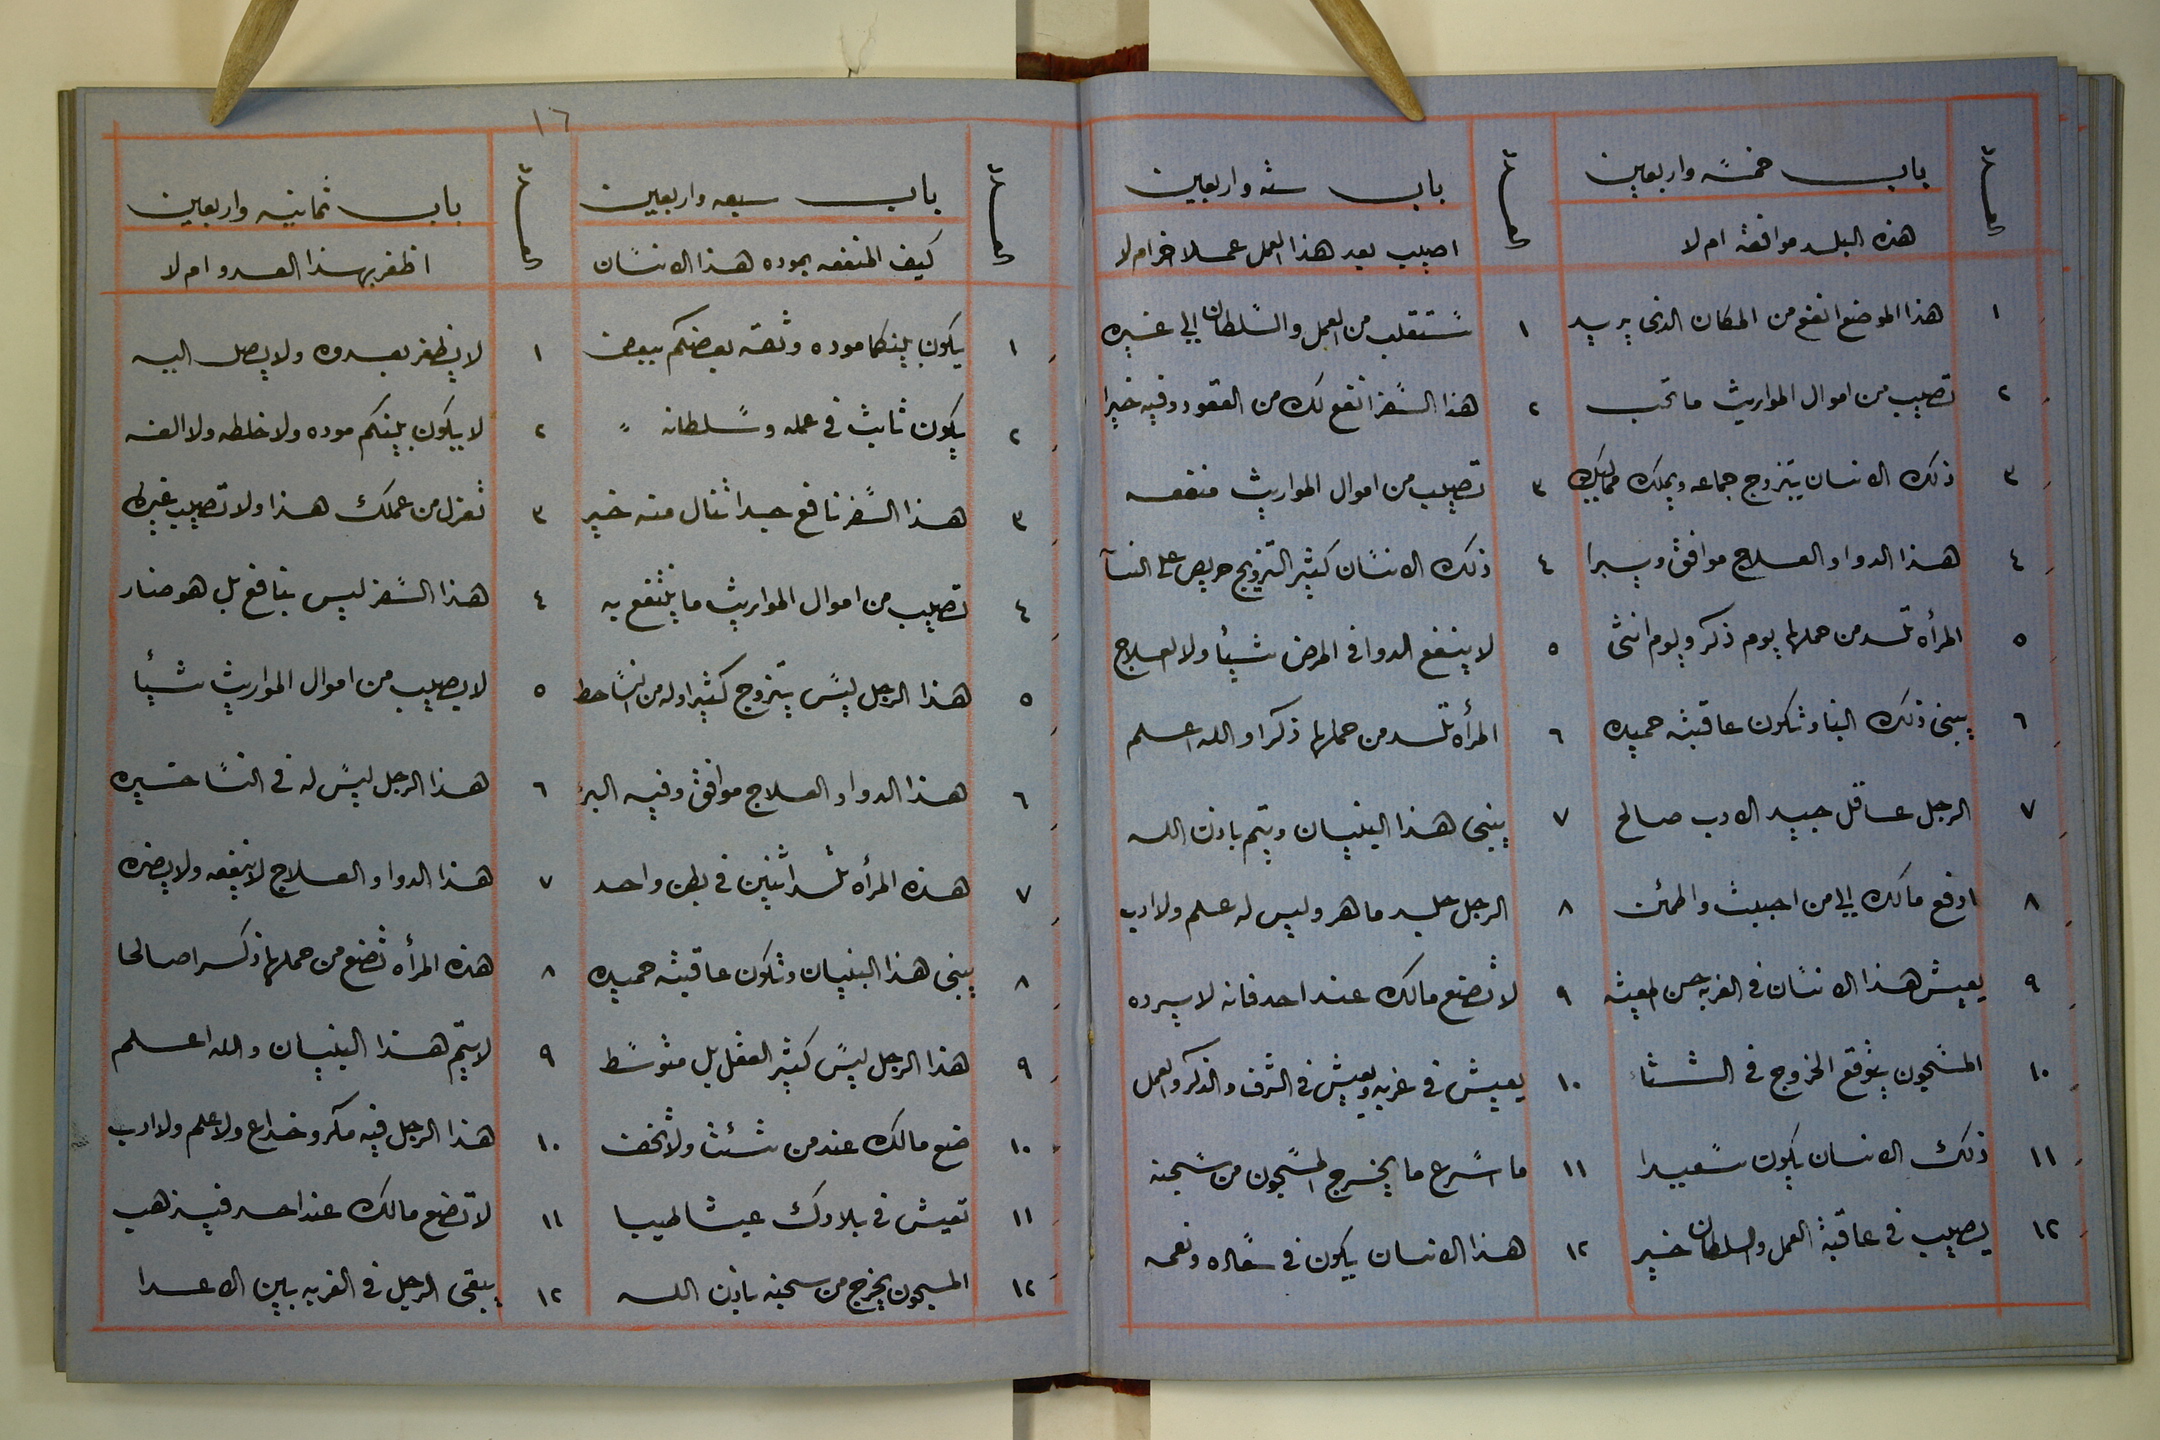 باب خمسة واربعين
هذه البلد موافقة ام لا
١ هذا الموضع انفع من المكان الذي يريد
٢ تصيب من اموال المواريث ما تحب
٣ ذلك الانسان يتزوج جماعه ويملك مماليك
٤ هذا الدوا والعلاج موافق ويبرا
٥ المرأه تلد من حملها يوم ذكر ويوم انثى
٦ يبنى ذلك البنا وتكون عاقبته حميده
٧ الرجل عاقل جيد الادب صالح
٨ ادفع مالك الي من احببت واطمئن
٩ يعيش هذا الانسان في الغربه حسن المعيشه
١٠ المسجون يتوقع الخروج في الشتا
١١ ذلك الانسان يكون سعيدا
١٢ يصيب في عاقبة العمل والسلطان خير
باب سته واربعين
اصيب بعد هذا العمل عملا اخر ام لا
١ ستنقلب من العمل والسلطان الي غيره
٢ هذا السفر انفع لك من القعود وفيه خيرا
٣ تصيب من اموال المواريث منفعه
٤ ذلك الانسان كثير التزويج حريص على النسآ
٥ لا ينفع الدوا في المرض شيأ ولا العلاج
٦ المرأه تلد من حملها ذكرا والله اعلم
٧ يبنى هذا البنيان ويتم باذن الله
٨ الرجل جليد ماهر وليس له علم ولا ادب
٩ لا تضع مالك عند احد فانه لا يرده
١٠ يعيش في غربه ويعيش في الشرف والذكر والعمل
١١ ما اسرع ما يخرج المسجون من سجنه
١٢ هذا الانسان يكون في سعاده ونعمه
١٦
باب سبعه واربعين
كيف المنفعه بموده هذا الانسان
١ يكون بينكما موده وثقه بعضكم ببعض
٢ يكون ثابت في عمله وسلطانه
٣ هذا السفر نافع جدا تنال منه خير
٤ تصيب من اموال المواريث ما ينتفع به
٥ هذا الرجل ليس يتزوج كثيرا وله من النسا حظ
٦ هذا الدوا والعلاج موافق وفيه البر
٧ هذه المرأه تلد اثنين في بطن واحد
٨ يبنى هذا البنيان وتكون عاقبته حميده
٩ هذا الرجل ليس كثير العقل بل متوسط
١٠ ضع مالك عند من شئت ولا تخف
١١ تعيش في بلادك عيشا طيبا
١٢ المسجون يخرج من سجنه باذن الله
باب ثمانيه واربعين
اظفر بهذا العدو ام لا
١ لا يظفر بعدوه ولا يصل اليه
٢ لا يكون بينكم موده ولا خلطه ولا الفه
٣ تعزل من عملك هذا ولا تصيب غيره
٤ هذا السفر ليس بنافع بل هو ضار
٥ لا يصيب من اموال المواريث شيأ
٦ هذا الرجل ليس له في النسا خيره
٧ هذا الدوا والعلاج لا ينفعه ولا يضره
٨ هذه المرأه تضع من حملها ذكرا صالحا
٩ لا يتم هذا البنيان والله اعلم
١٠ هذا الرجل فيه مكر وخداع ولا علم ولا ادب
١١ لا تضع مالك عند احد فيذهب
١٢ يبقى الرجل في الغربه بين الاعدا